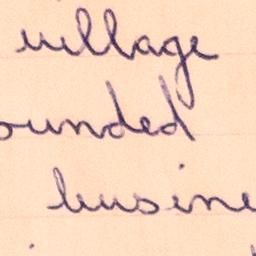 village
ounded
busine